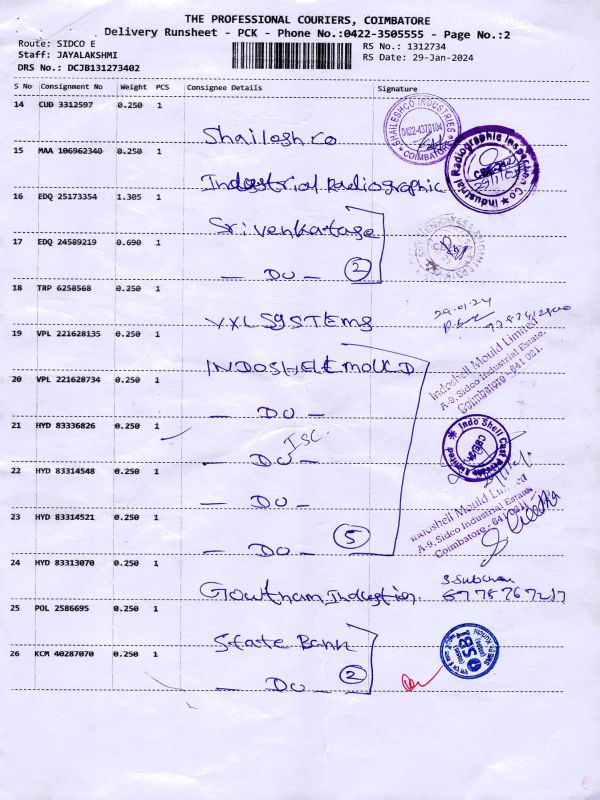 THE PROFESSIONAL COURIERS, COIMBATORE
Delivery Runsheet - PCK - Phone No.:0422-3505555 - Page No.:2
Route: SIDCO E
RS No.: 1312734
Staff: JAYALAKSHMI
RS Date: 29-Jan-2024
DRS No.: DCJB131273402
S No Consignment No Weight PCS Consignee Details Signature
14 CUD 3312597 0.250 1
Shailesh co
SHAILESHCO INDUSTRIES
0422-4370104
COIMBATORE
15 MAA 106962340 0.250 1
Industrial Radiographic
Industrial Radiographic Inspection Co
16 EDQ 25173354 1.305 1
Srivenkatase
17 EDQ 24589219 0.690 1
— DO — 2
18 TRP 6258568 0.250 1
VXL SYSTEMS
29.01.24
19 VPL 221628135 0.250 1
INDOSHELL MOULD
Indoshell Mould Limited
A-9, Sidco Industrial Estate,
Coimbatore - 641 021.
20 VPL 221628734 0.250 1
— DO —
21 HYD 83336826 0.250 1
ISC.
— DO —
Indo Shell Cast Private Limited
22 HYD 83314548 0.250 1
— DO —
23 HYD 83314521 0.250 1
— DO — 5
Indoshell Mould Limited
A-9, Sidco Industrial Estate,
Coimbatore - 641
24 HYD 83313070 0.250 1
Gowtham Induction
25 POL 2586695 0.250 1
State Bank
26 KCM 40287070 0.250 1
— DO — 2
SBI